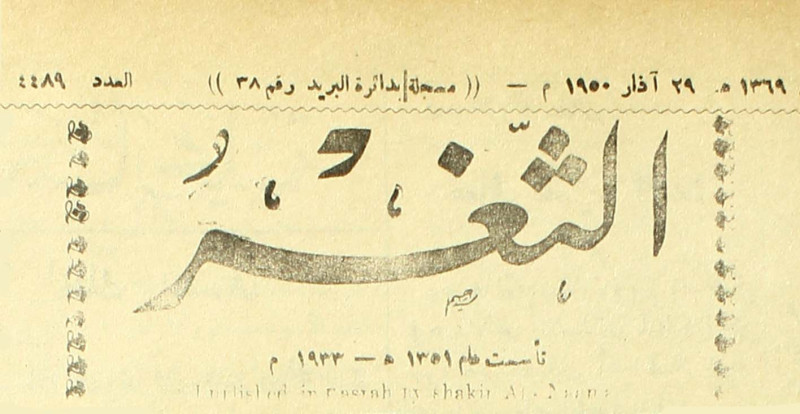 ١٣٦٩ هـ ٢٩ آذار ١٩٥٠ م — (( مسجلة بدائرة البريد رقم ٣٨ )) العدد ٤٤٨٩
الثَّغْرُ
تأسست عام ١٣٥١ ه — ١٩٣٣ م
Published in Basrah by Shakir